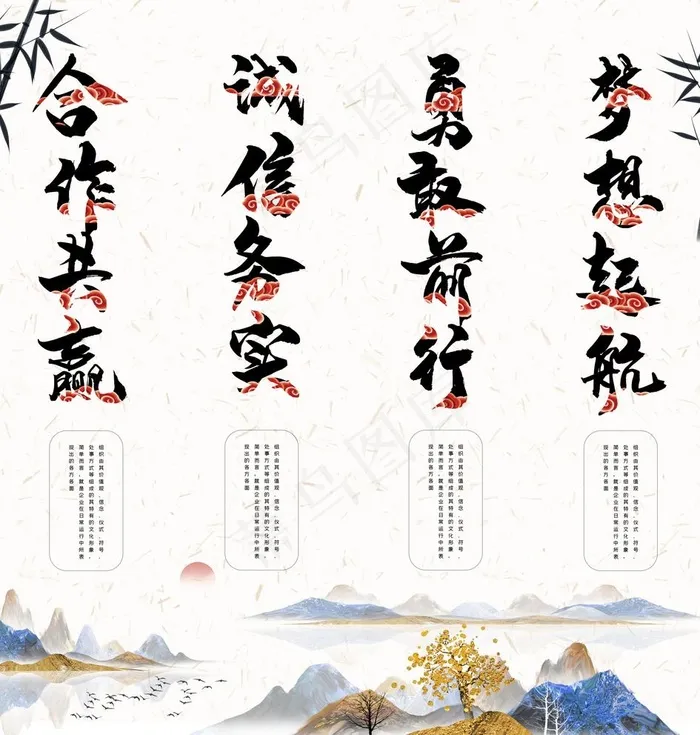 合作共赢
诚信务实
勇敢前行
梦想起航
组织由其价值观、信念、仪式、符号、
处事方式等组成的其特有的文化形象,
简单而言,就是企业在日常运行中所表
现出的各方各面
组织由其价值观、信念、仪式、符号、
处事方式等组成的其特有的文化形象,
简单而言,就是企业在日常运行中所表
现出的各方各面
组织由其价值观、信念、仪式、符号、
处事方式等组成的其特有的文化形象,
简单而言,就是企业在日常运行中所表
现出的各方各面
组织由其价值观、信念、仪式、符号、
处事方式等组成的其特有的文化形象,
简单而言,就是企业在日常运行中所表
现出的各方各面